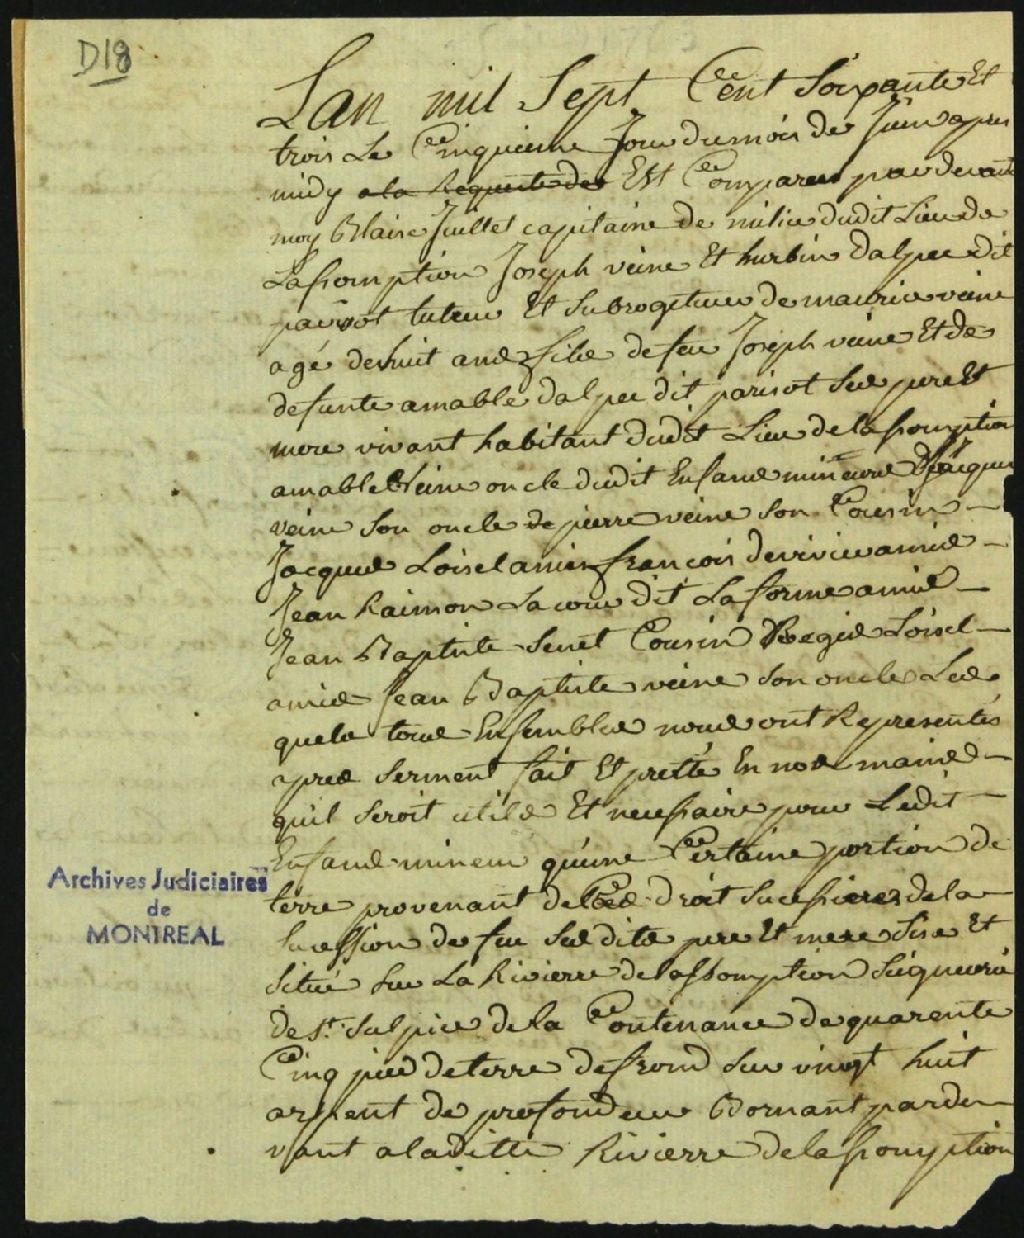 D18
Lan mil Sept Cent Soixante Et
trois Le Cinquieme Jour du mois de Juin apres
midy a la Requeste des Est Comparus par devant
moy Blaise Juillet capitaine de milice dudit Lieu de
Lassomption Joseph veine Et hurbin dalpee dit
parisot tuteur Et Subrogetuteur de maurice veine
agé de huit ans fils de feu Joseph veine Et de
defunte amable dalpee dit parisot Ses pere Et
mere vivant habitant dudit Lieu de lassomption
amable Veine oncle dudit Enfans mineure Jacques
veine Son oncle de pierre veine Son Cousin
Jacques Loisel amis francois deriviere amis
Jean Raimon Lacour dit Laforme amis
Jean Baptiste Senet Cousin Regis Loisel
amis Jean Baptiste veine Son oncle Les
quels tous Ensembles nous ont Representés
apres Serment fait Et presté En nos mains
quil Seroit utile Et necessaire pour Ledit
Enfans mineur qu'une Certaine portion de
terre provenant de Ces droit Sucessieres de la
Sucession de feu Sesdits pere Et mere Sise Et
Situé Sur La Rivierre de lassomption Seigneurie
de St Sulpice de la Contenance de quarente
Cinq pied de terre de frond Sur vingt huit
arpent de profondeur Bornant par de
vant a laditte Rivierre de lassomption
Archives Judiciaires
de
MONTREAL